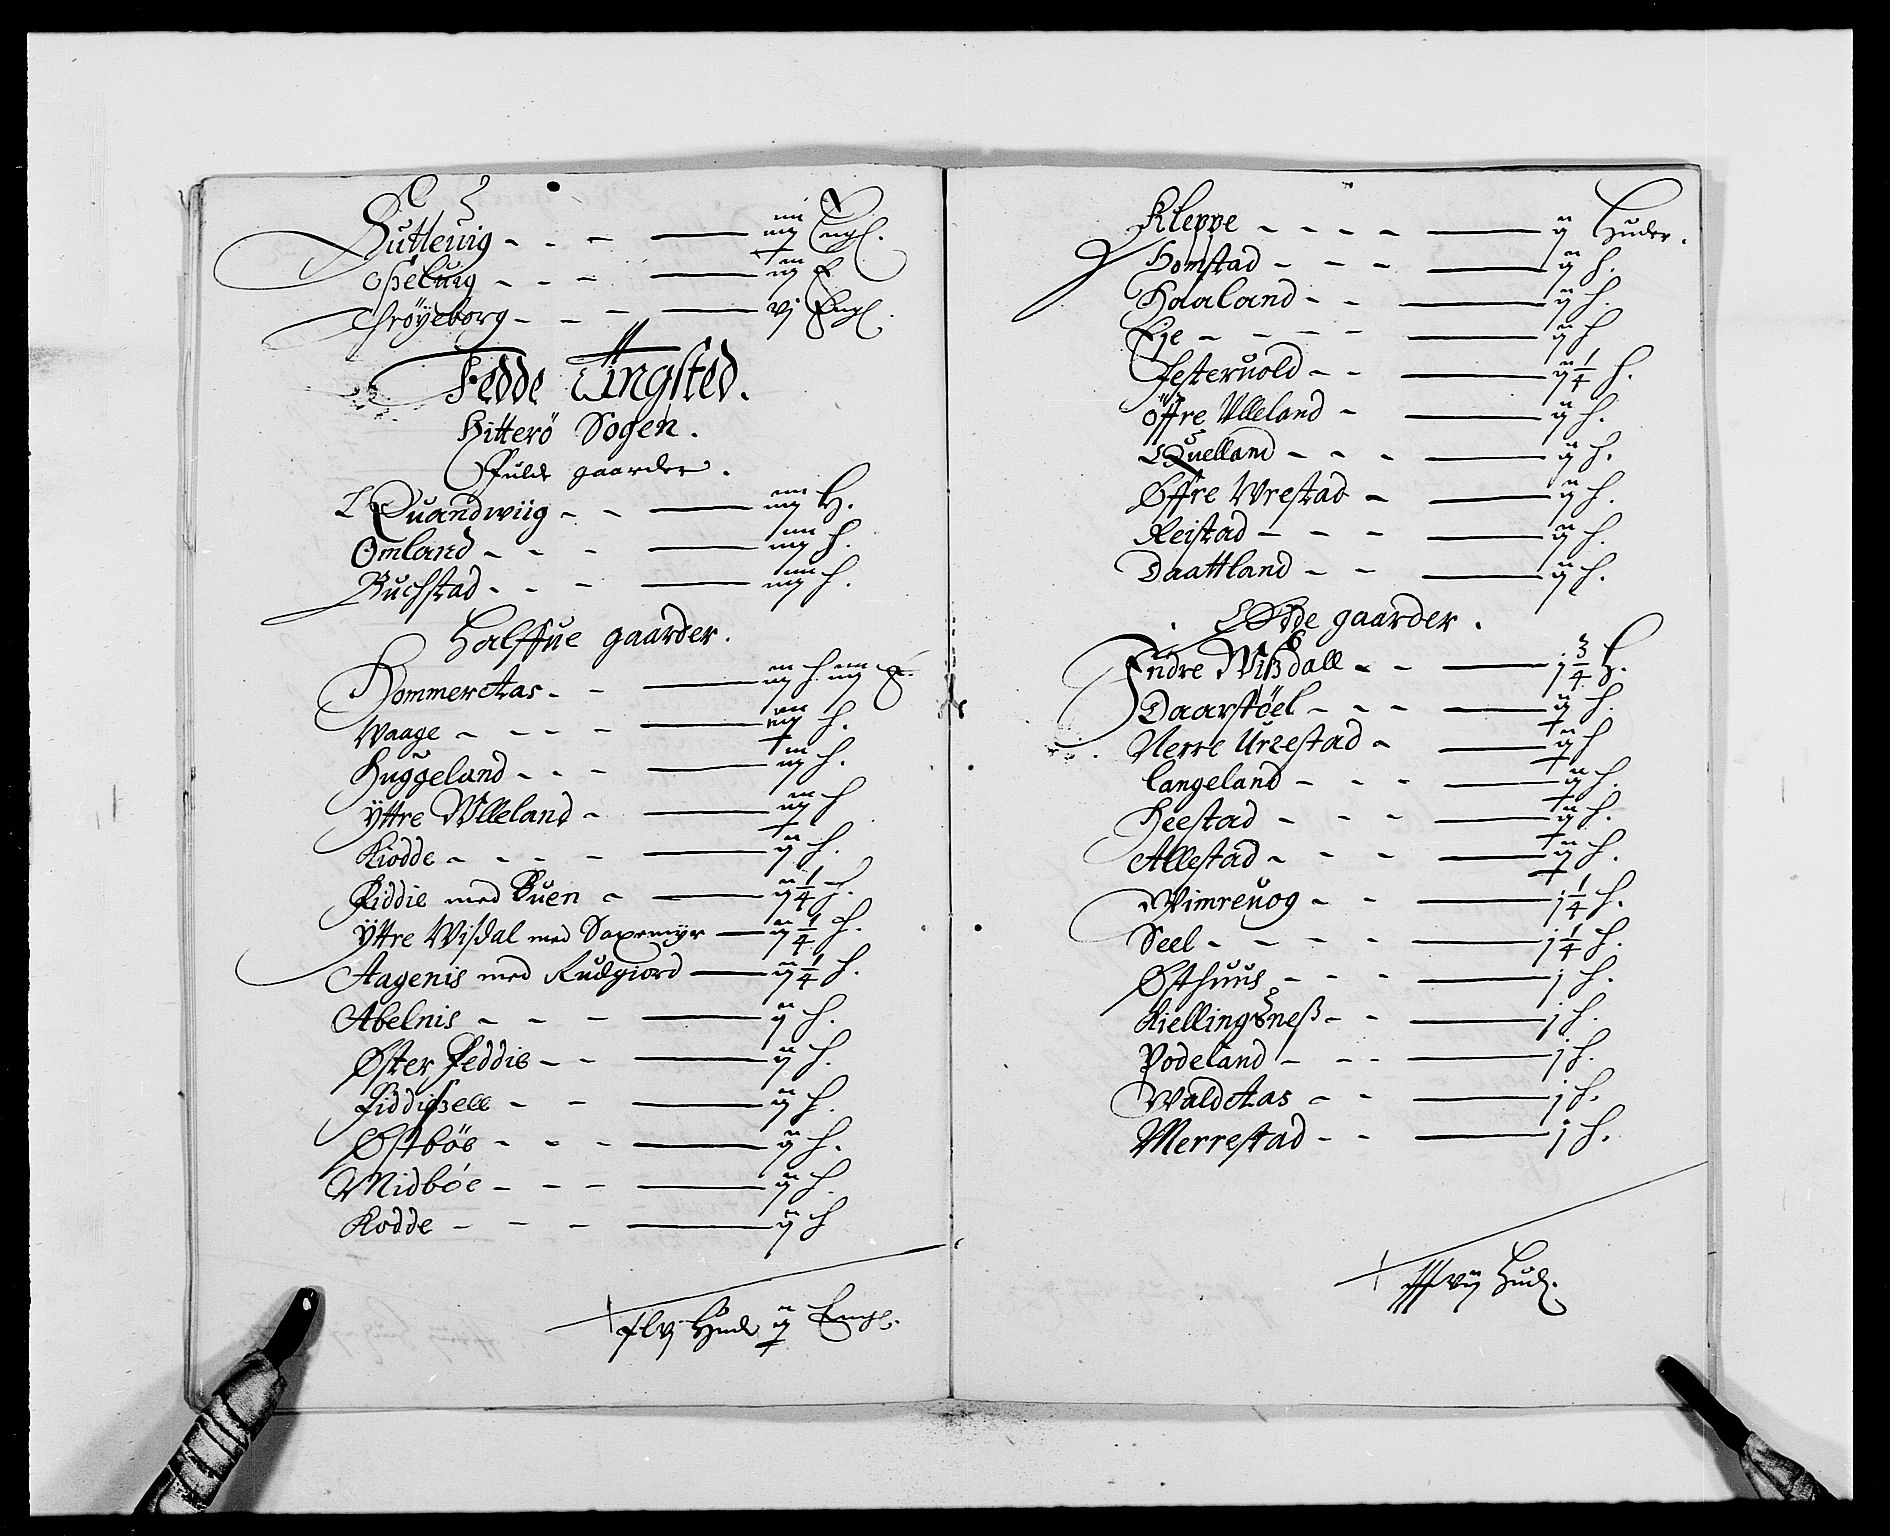 Gutleuig - - - — iiij Engl.
Oxeluig - - - — iij E
Frøyeborg - - - — vj Engl.
Fedde Tingsted.
Hitterö Sogen.
Fulde gaarder.
Quandwiig - - — iiij H.
Omland - - - — iiij h.
Buchstad - - - — iiij h.
Halffue gaarder.
Hommer Aas - - — iij h iij E
Waage - - - - — iij h.
Huggeland - - - — iij h.
Yttre Ulleland - — iij h
Kiodde - - - - — ij h.
Fiddie med Buen - — ij 1/4 h.
Yttre Wisdal med Saxemyr — ij 1/4 h.
Aagenis med Rudgiord — ij 1/4 h.
Abelnis - - - — ij h.
Øster Feddie - - — ij h.
Fiddissell - - — ij h.
Østböe - - - — ij h.
Midböe - - - — ij h
Kodde - - - — ij h
lvj Hude ij Engl.
Kleppe - - - - — ij Huder.
Homstad - - - — ij h.
Haaland - - — ij h.
Eje - - - - — ij h
Jesteruold - - — ij 1/4 h.
Öffre Ulleland - — ij h.
Quelland - - - — ij h.
Øffre Wrestad - — ij h.
Reistad - - - — ij h.
Daattland - - — ij h.
Ødde gaarder.
Indre Wißdall - - — j 3/4 H.
Daarstöel - - - — ij h.
Nerre Urrestad - — ij h
Langeland - - - — ij h.
Heestad - - - — ij h.
Allestad - - - — ij h.
Wimreuog - - — j 1/4 h.
Seel - - - - — j 1/4 h.
Østhuus - - - — j h.
Kiellingßneß - - — j h.
Podeland - - - — j h.
Wald Aas - - — j h.
Merrestad - - — j h.
xxxvij Hud.